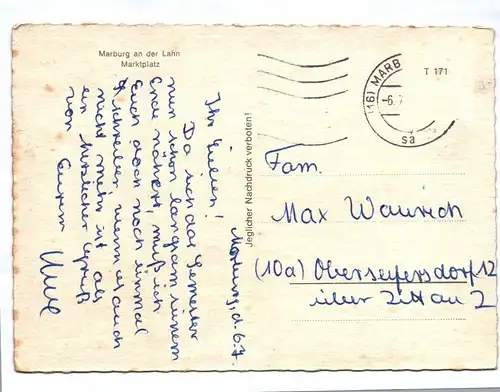 Marburg an der Lahn
Marktplatz
T 171
(16) MARB
-6.7
sa
Jeglicher Nachdruck verboten!
Marburg, d. 6.7.
Ihr Lieben!
Da sich das Semester
nun schon langsam seinem
Ende nähert, muß ich
Euch doch noch einmal
schreiben, wenn es auch
nicht mehr ist als
ein herzlicher Gruß
von Eurem
Uwe
Fam.
Max Waurich
(10a) Oberseifersdorf 12
über Zittau 2